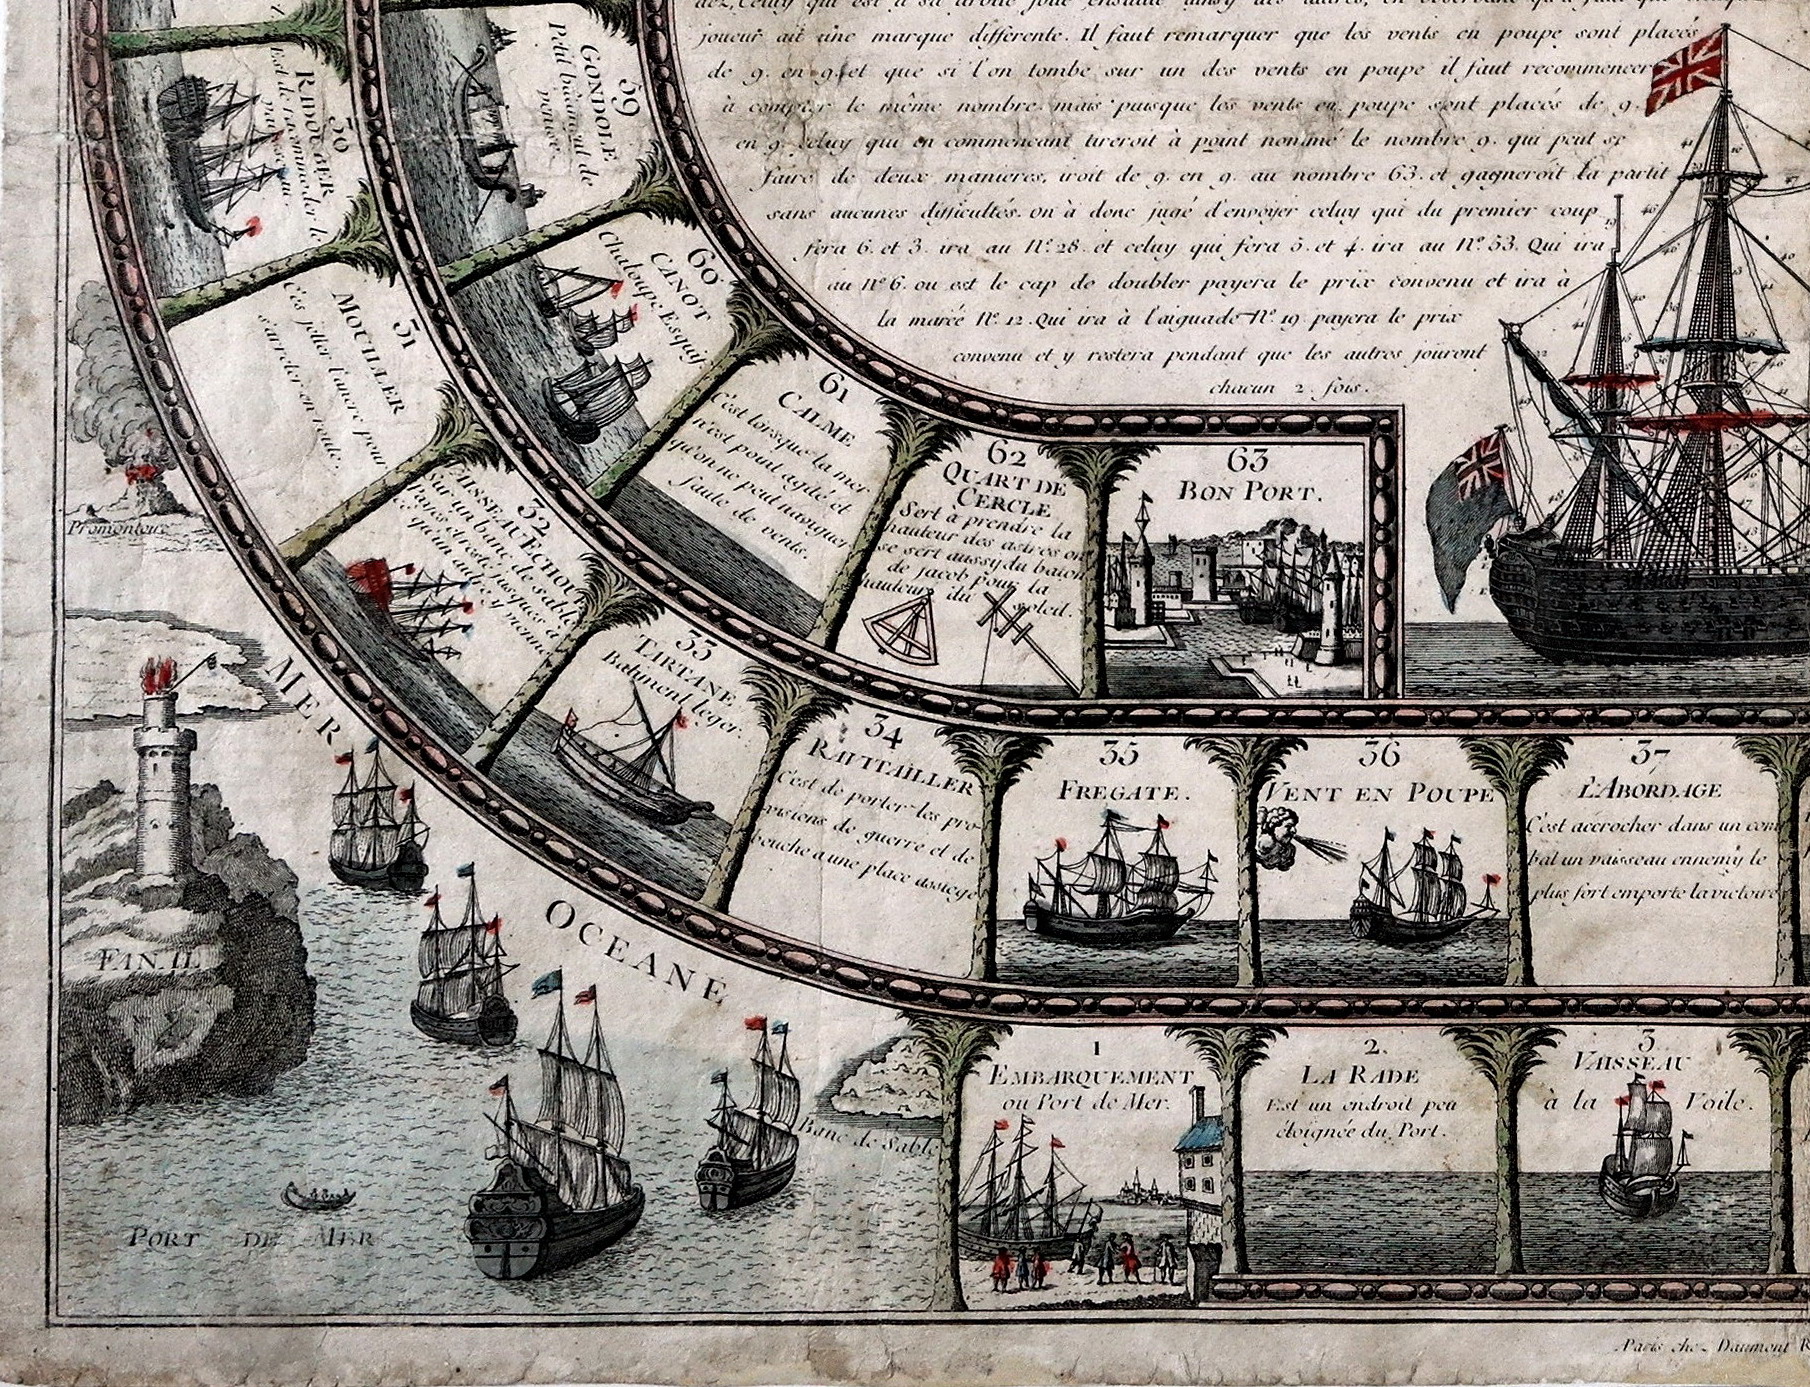 joueur ait une marque différente. Il faut remarquer que les vents en poupe sont placés
de 9. en 9. et que si l'on tombe sur un des vents en poupe il faut recommencer
à compter le même nombre mais puisque les vents en poupe sont placés de 9.
en 9. celuy qui en commencant tireroit à point nommé le nombre 9. qui peut se
faire de deux manieres, iroit de 9. en 9. au nombre 63. et gagneroit la partit
sans aucunes difficultés. on à donc jugé d'envoyer celuy qui du premier coup
fera 6. et 3. ira au N.º 28. et celuy qui fera 5. et 4. ira au N.º 53. Qui ira
au N.º 6. ou est le cap de doubler payera le prix convenu et ira à
la marée N.º 12. Qui ira à l'aiguade N.º 19 payera le prix
convenu et y restera pendant que les autres joüront
chacun 2. fois.
30
RADOUBER
Est de racommoder le
31
MOUILLER
C'es jetter l'ancre pour
s'arrêter en route.
32
VAISSEAU ECHOU
Sur un banc de sable
33
TARTANE
Batiment leger.
34
RAVITAILLER
C'est de porter les pro-
visions de guerre et de
bouche a une place assiegé
35
FREGATE.
36
VENT EN POUPE
37
L'ABORDAGE
C'est accrocher dans un com
bat un vaisseau ennemy le
plus fort emporte la victoire
59
GONDOLE
Petit bâtiment de
venise.
60
CANOT
Chaloupe Esquif
61
CALME
C'est lorsque la mer
n'est point agité et
qu'on ne peut naviguer
faute de vents.
62
QUART DE
CERCLE
Sert à prendre la
hauteur des astres on
se sert aussy du baton
de jacob pour la
hauteur du soleil.
63
BON PORT.
Promontoire
MER
OCEANE
FANAL
Banc de Sable
PORT DE MER
1
EMBARQUEMENT
ou Port de Mer.
2.
LA RADE
Est un endroit peu
éloignée du Port.
3
VAISSEAU
à la Voile.
Paris chez Daumont R